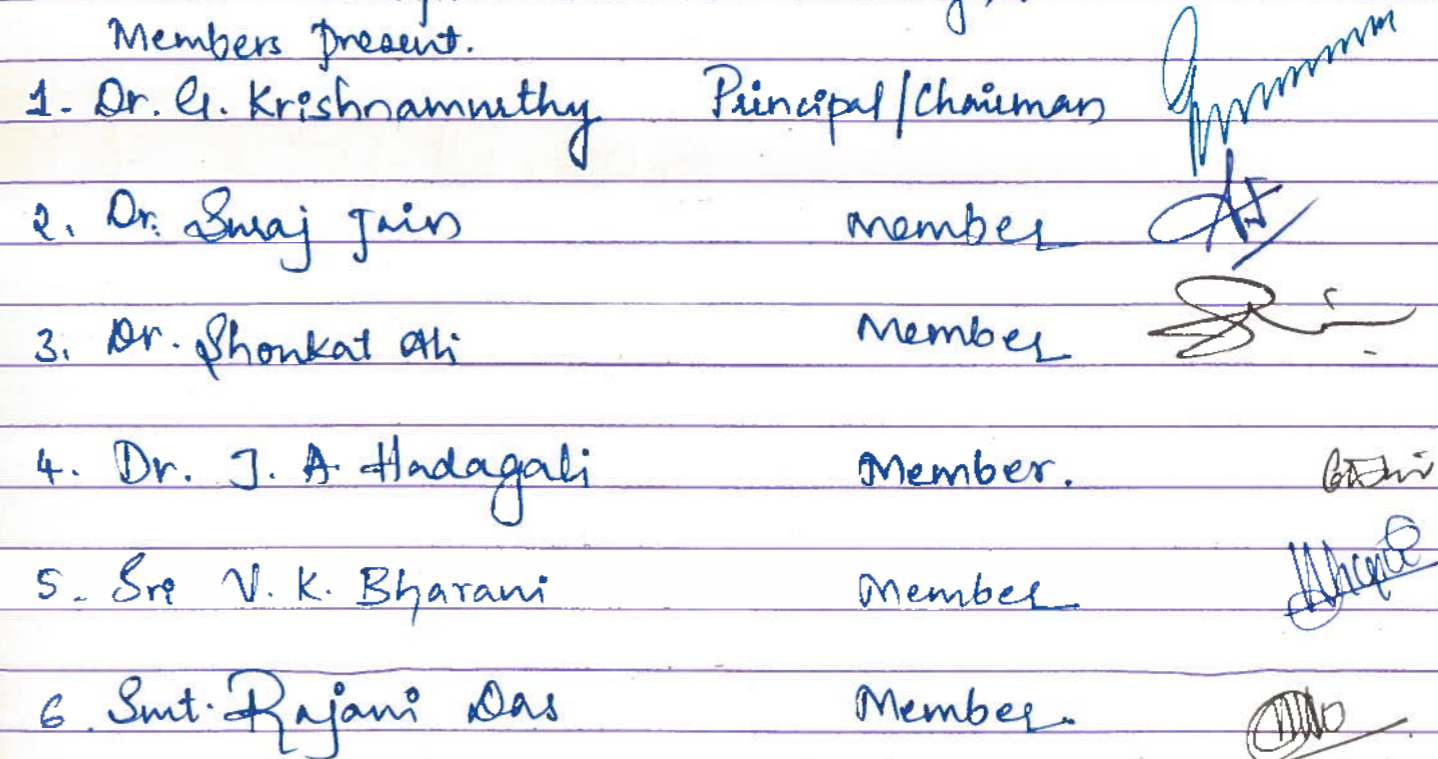 Members present.
1. Dr. G. Krishnamurthy Principal/Chairman
2. Dr. Suraj Jain Member
3. Dr. Shoukat Ali Member
4. Dr. J. A Hadagali Member.
5. Sri V. K. Bharani Member
6. Smt. Rajani Das Member.